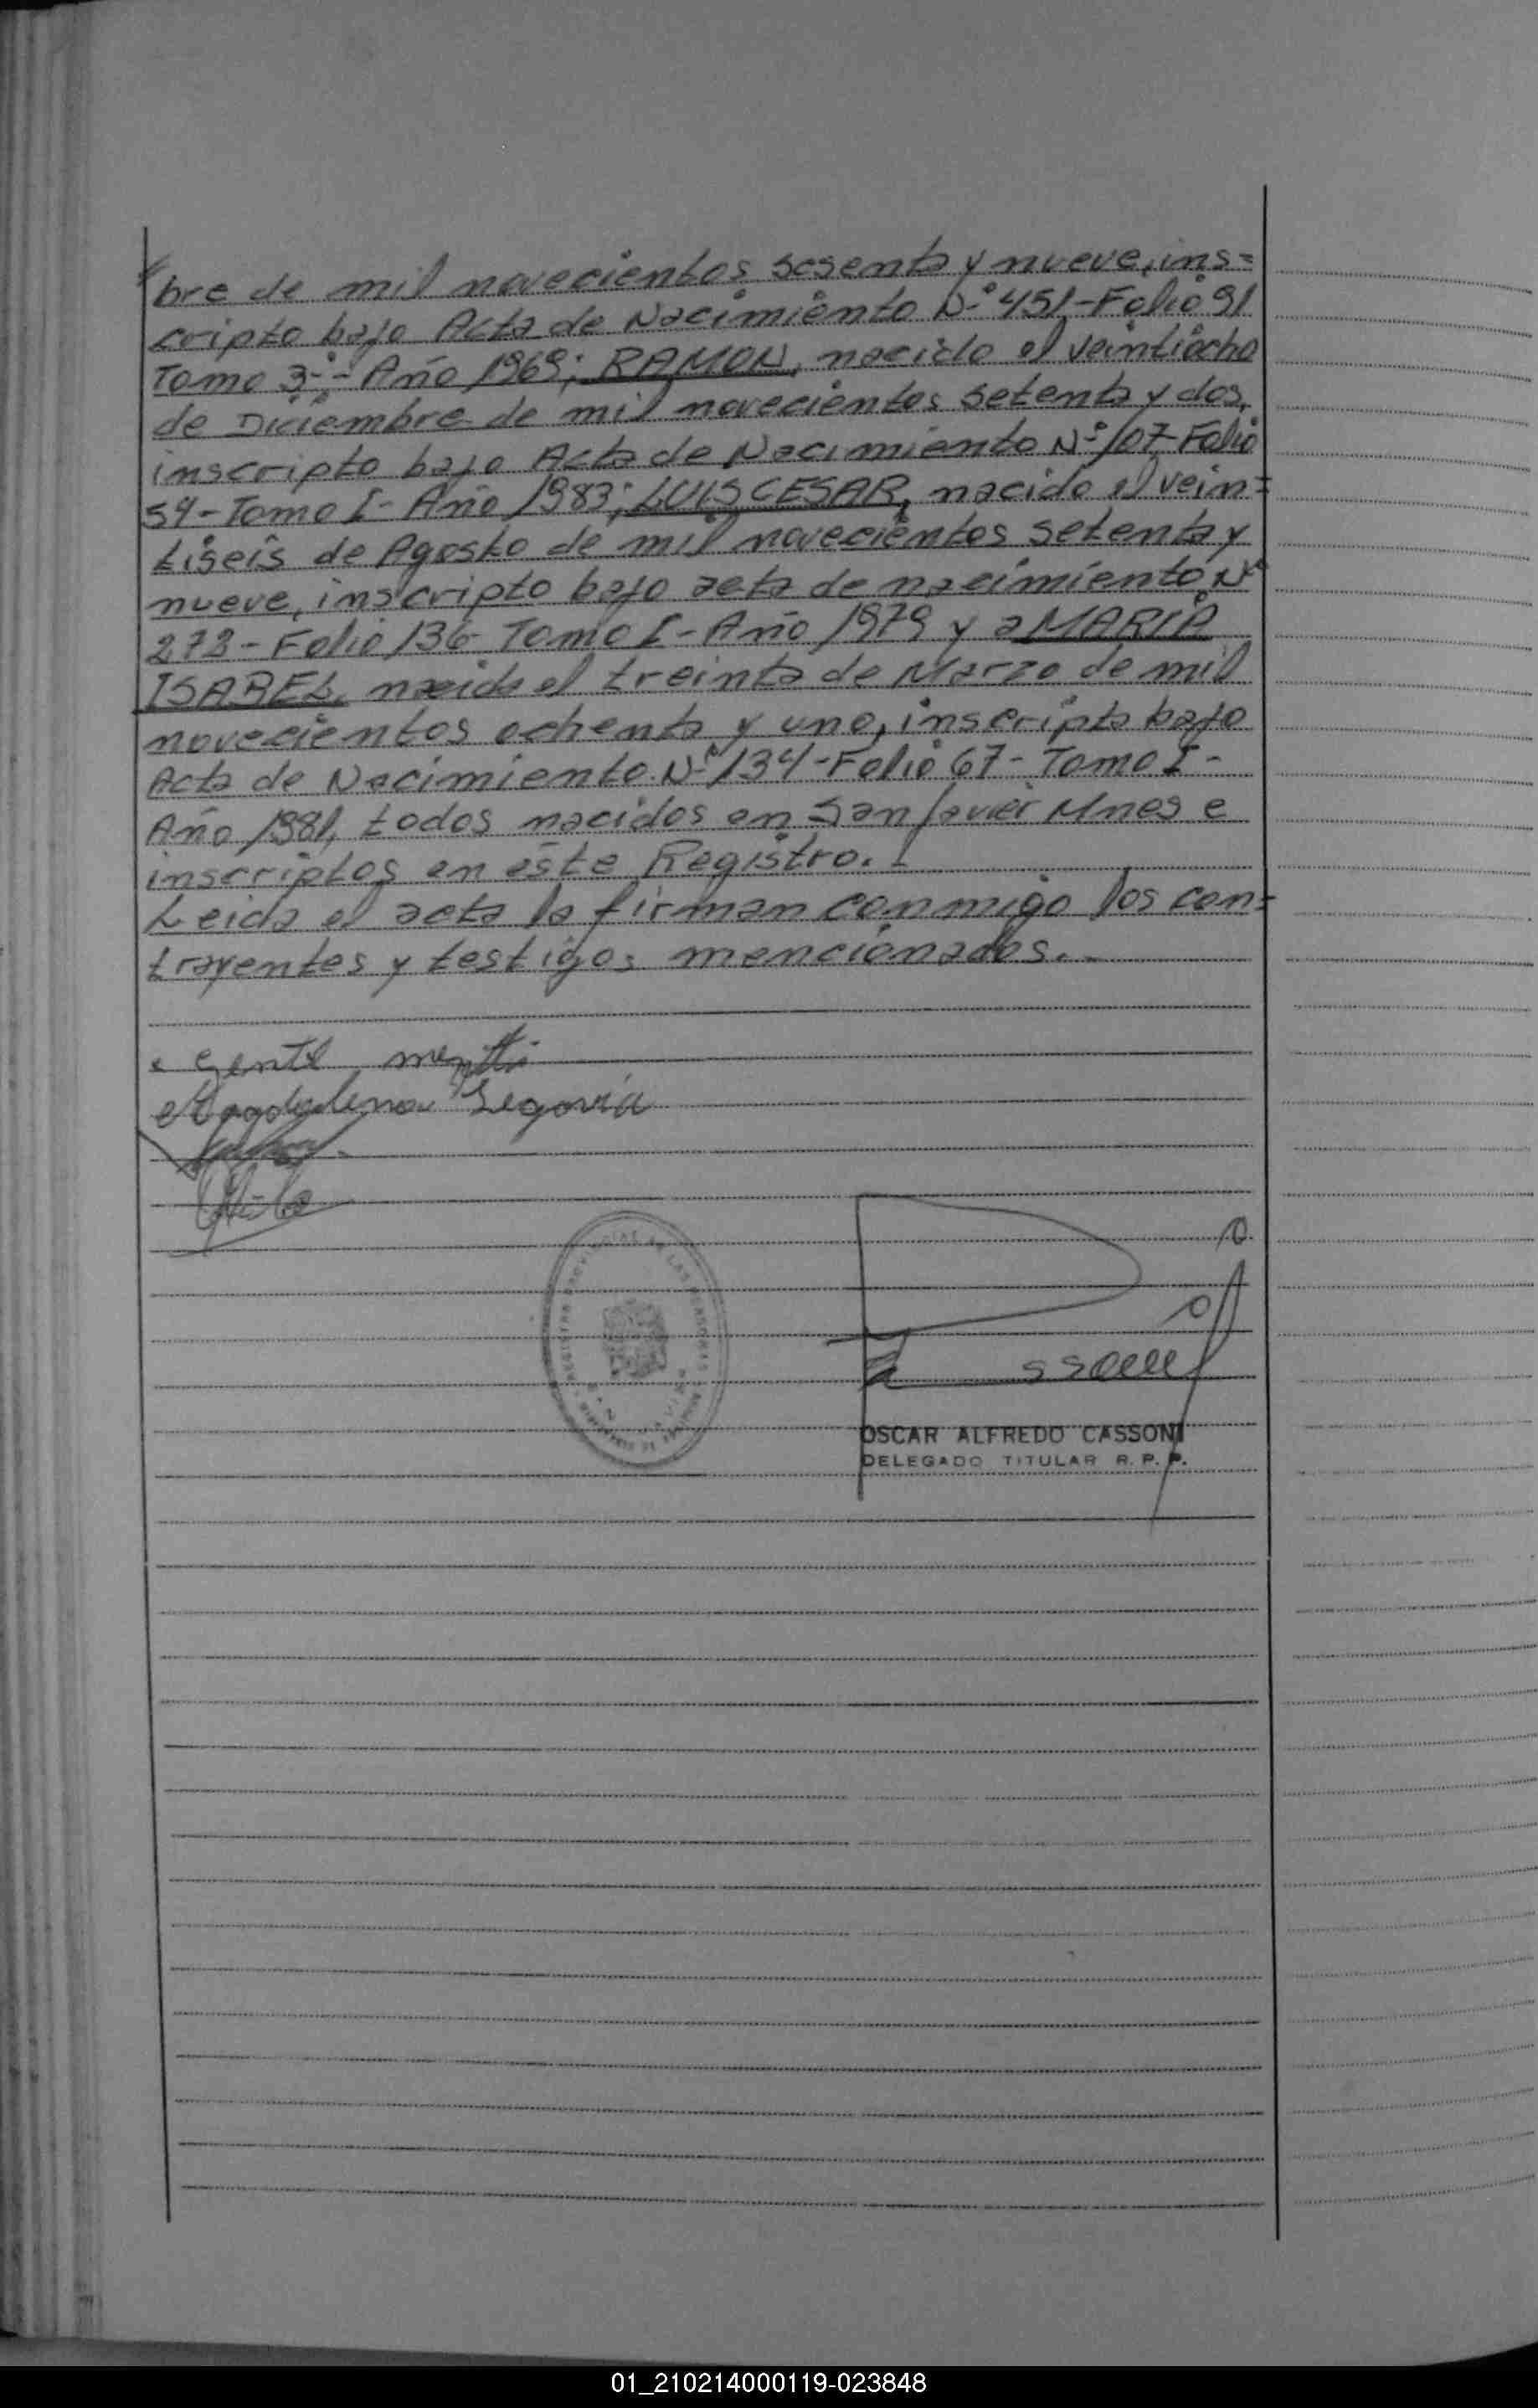 bre de mil novecientos sesenta y nueve, ins=
cripto bajo Acta de Nacimiento Nº 451-Folio 91
Tomo 3º- Año 1969; RAMON, nacido el veintiocho
de Diciembre de mil novecientos setenta y dos,
inscripto bajo Acta de Nacimiento Nº 107-Folio
54-Tomo I- Año 1983; LUIS CESAR, nacido el vein=
tiseis de Agosto de mil novecientos setenta y
nueve, inscripto bajo acta de nacimiento Nº
272-Folio 136-Tomo I-Año 1979 y a MARIA
ISABEL, nacida el treinta de Marzo de mil
novecientos ochenta y uno, inscripta bajo
Acta de Nacimiento Nº 134-Folio 67-Tomo I-
Año 1981, todos nacidos en San Javier Mnes e
inscriptos en éste Registro.-
Leida el acta la firman conmigo los con=
trayentes y testigos mencionados.-
Magdalena Segovia
OSCAR ALFREDO CASSONI
DELEGADO TITULAR R. P. P.
01_210214000119-023848